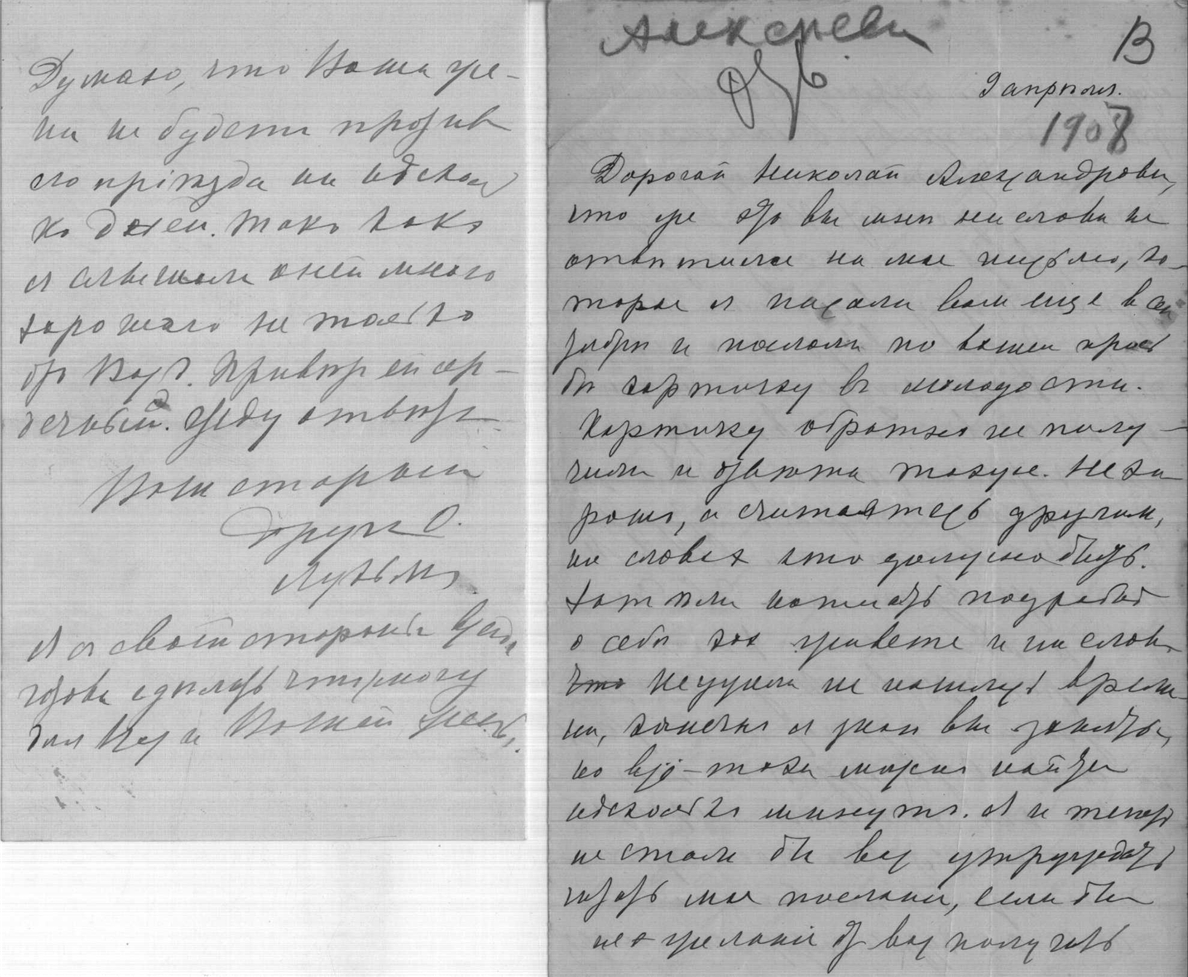 Думаю, что Ваша же-
на не будетъ противъ
его пріезда на нѣсколь
ко дней. Такъ какъ
я слышала о ней много
хорошаго не только
отъ Васъ. Привѣтъ ей сер-
дечный. Жду отвѣтъ
Вашъ старый
другъ О.
А я съ своей стороны всегда
готова сделать что могу
для Васъ и Вашей
Алексѣева
В
9 апрѣля.
1908
Дорогой Николай Александровичъ,
что же это вы мнѣ ни слова не
отвѣтили на мое письмо, ко-
торое я писала вамъ еще в сен
тябрѣ и послала по вашей прось
бѣ карточку въ молодости.
Карточку обратно не полу-
чила и отвѣта также. Не хо
рошо, а считаетесь другомъ,
на словахъ это должно быть.
Хотѣли написать подробно
о себѣ как живете и ни слова.
что Неужели не нашлось време
ни, конечно я знаю вы заняты,
но все-таки можно найти
нѣсколько минутъ. Я и теперь
не стала бы васъ утруждать
читать мое послание, если бы
не желаніе отъ васъ получить